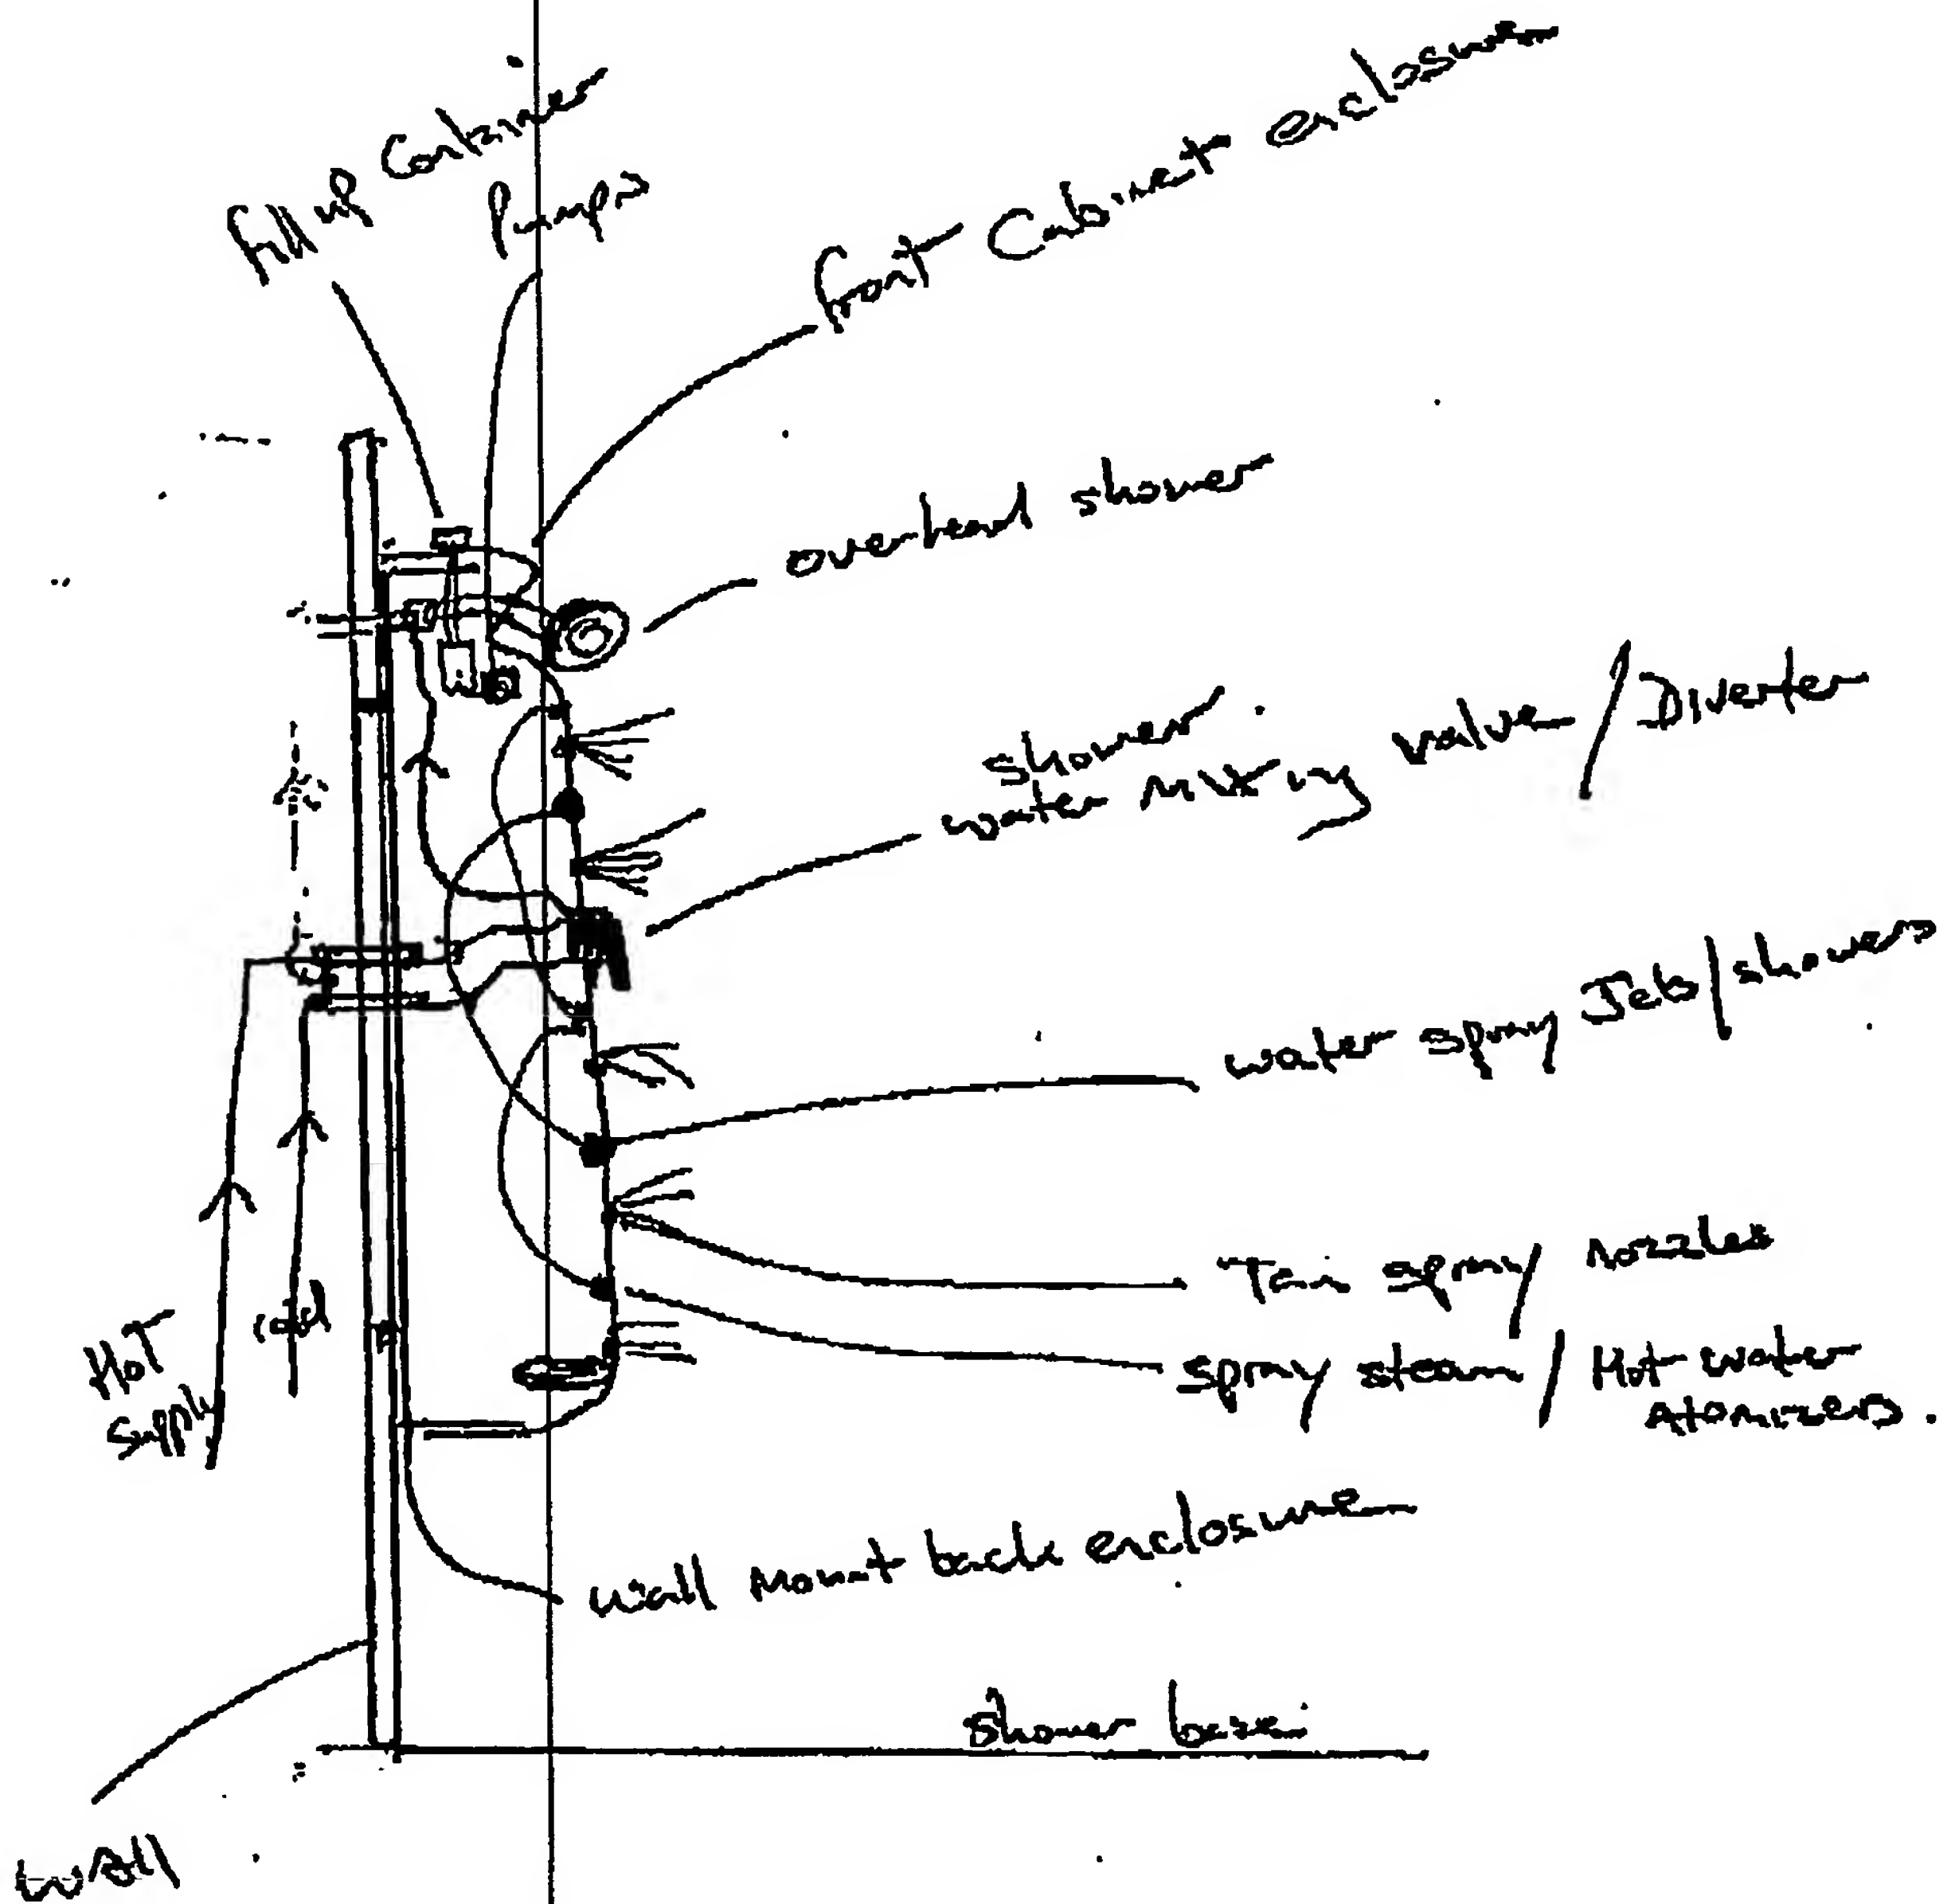 fill up Container
Pumps
front Cabinet enclosure
overhead shower
shower
water mixing valve / Diverter
water spray Jets / showers
Tan spray / nozzles
spray steam / Hot water
Atomizers.
HOT
supply
cold
wall Mount back enclosure
shower base
wall